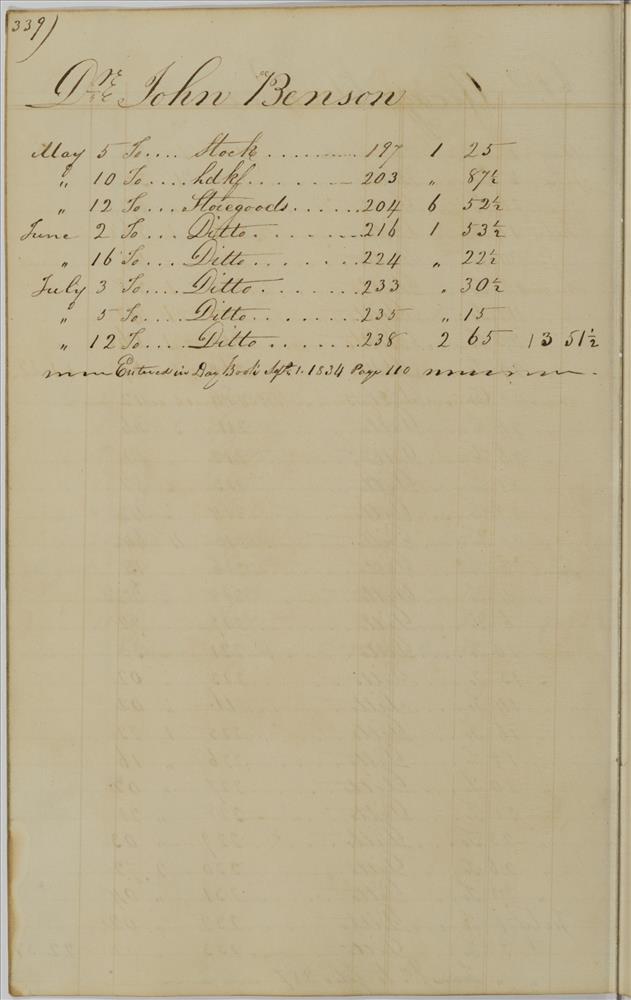 339)
Dr John Benson
May 5 To.... Stock......... 197 1 25
" 10 To.... hdkf....... 203 " 87½
" 12 To... Storegoods...... 204 6 52½
June 2 To.... Ditto........ 216 1 53½
" 16 To.... Ditto....... 224 " 22½
July 3 To.... Ditto....... 233 " 30½
" 5 To.... Ditto........ 235 " 15
" 12 To.... Ditto....... 238 2 65 13 51½
Entered in Day Book Sept. 1. 1834 Page 110